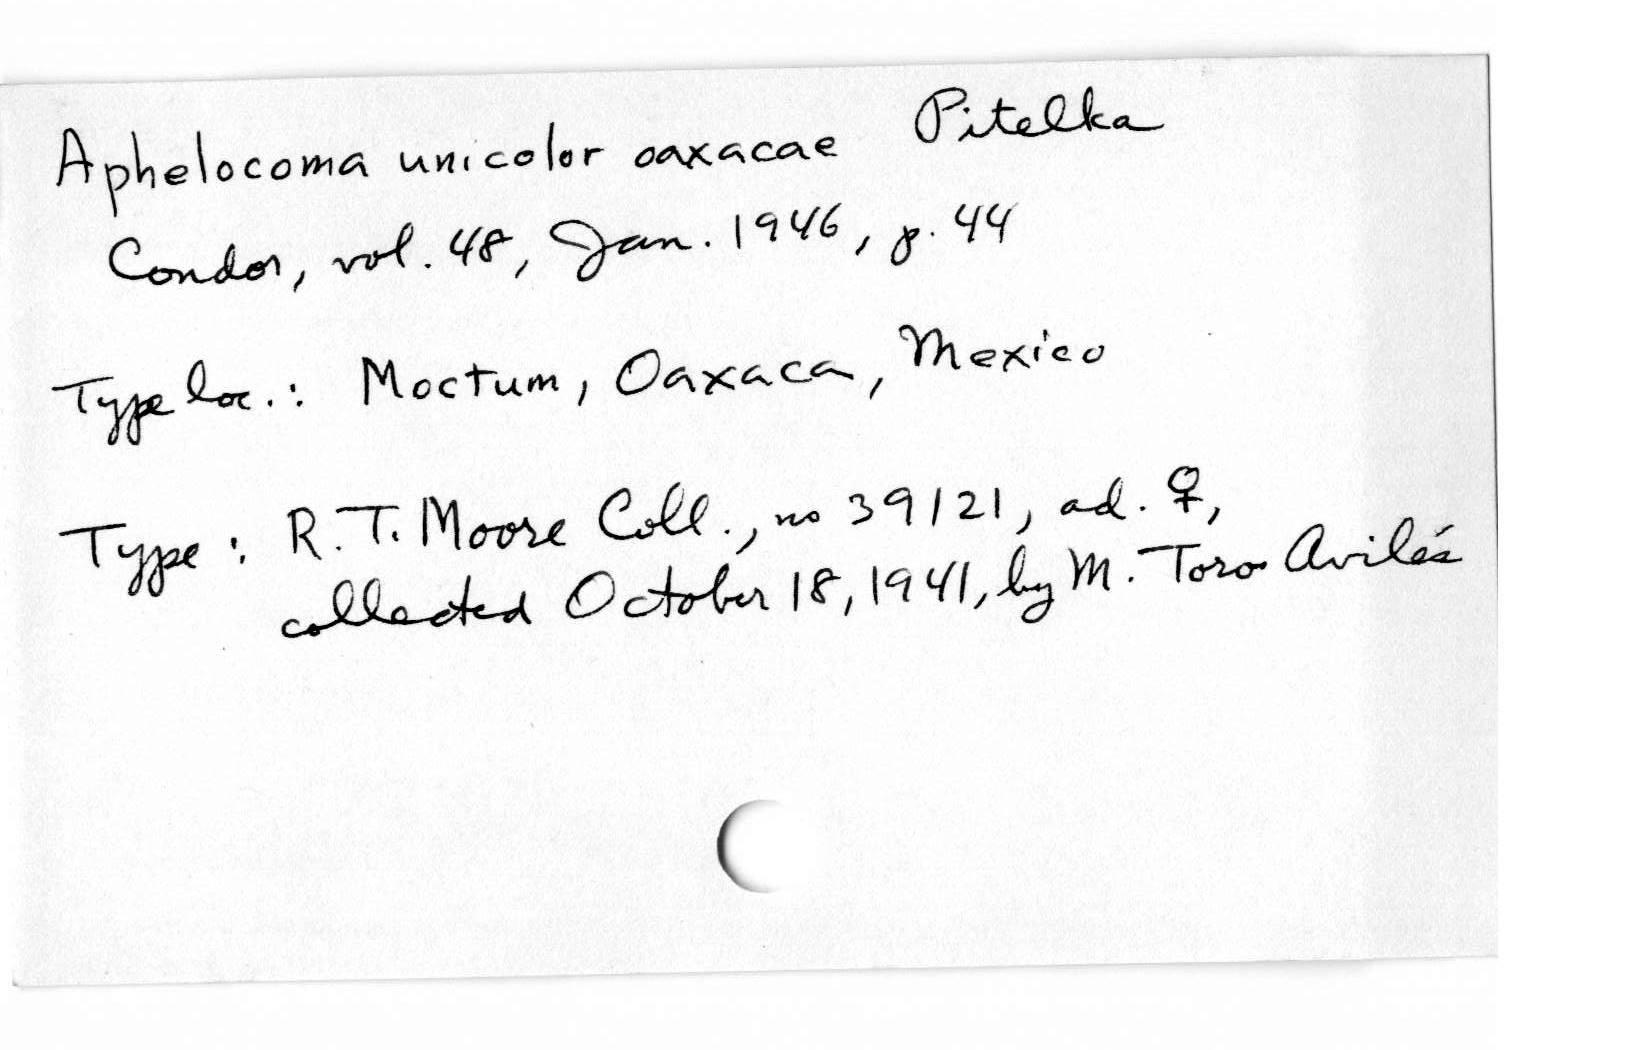 Aphelocoma unicolor oaxacae Pitelka
Condor, vol. 48, Jan. 1946, p. 44
Type loc.: Moctum, Oaxaca, Mexico
Type: R. T. Moore Coll., no 39121, ad. ♀,
collected October 18, 1941, by M. Toro Avilés